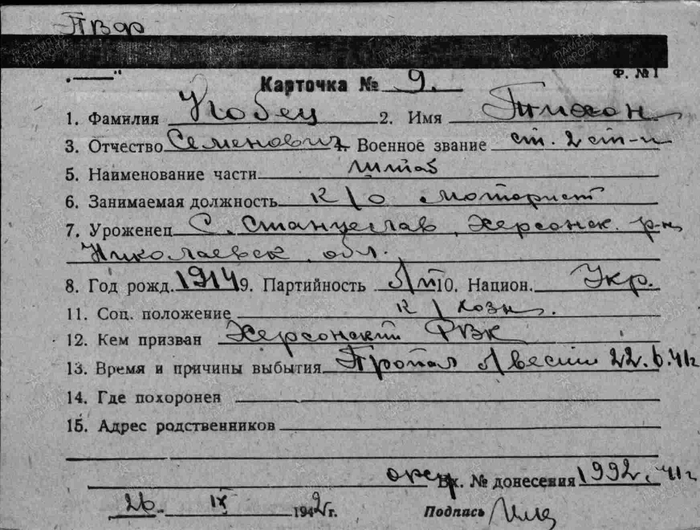 ПВФ
Ф. № 1
Карточка № 9.
1. Фамилия Кобец 2. Имя Тихон
3. Отчество Семенович 4. Военное звание ст. 2 ст-и
5. Наименование части штаб
6. Занимаемая должность к/о моторист
7. Уроженец С. Станислав, Херсонск. р-н
Николаевск обл.
8. Год рожд. 1914 9. Партийность б/п 10. Национ. Укр.
11. Соц. положение к/хозн.
12. Кем призван Херсонский РВК
13. Время и причины выбытия Пропал б/вести 22.6.41г
14. Где похоронен
15. Адрес родственников
Вх. № донесения 1992, 41г
26 IX 1942г. Подпись